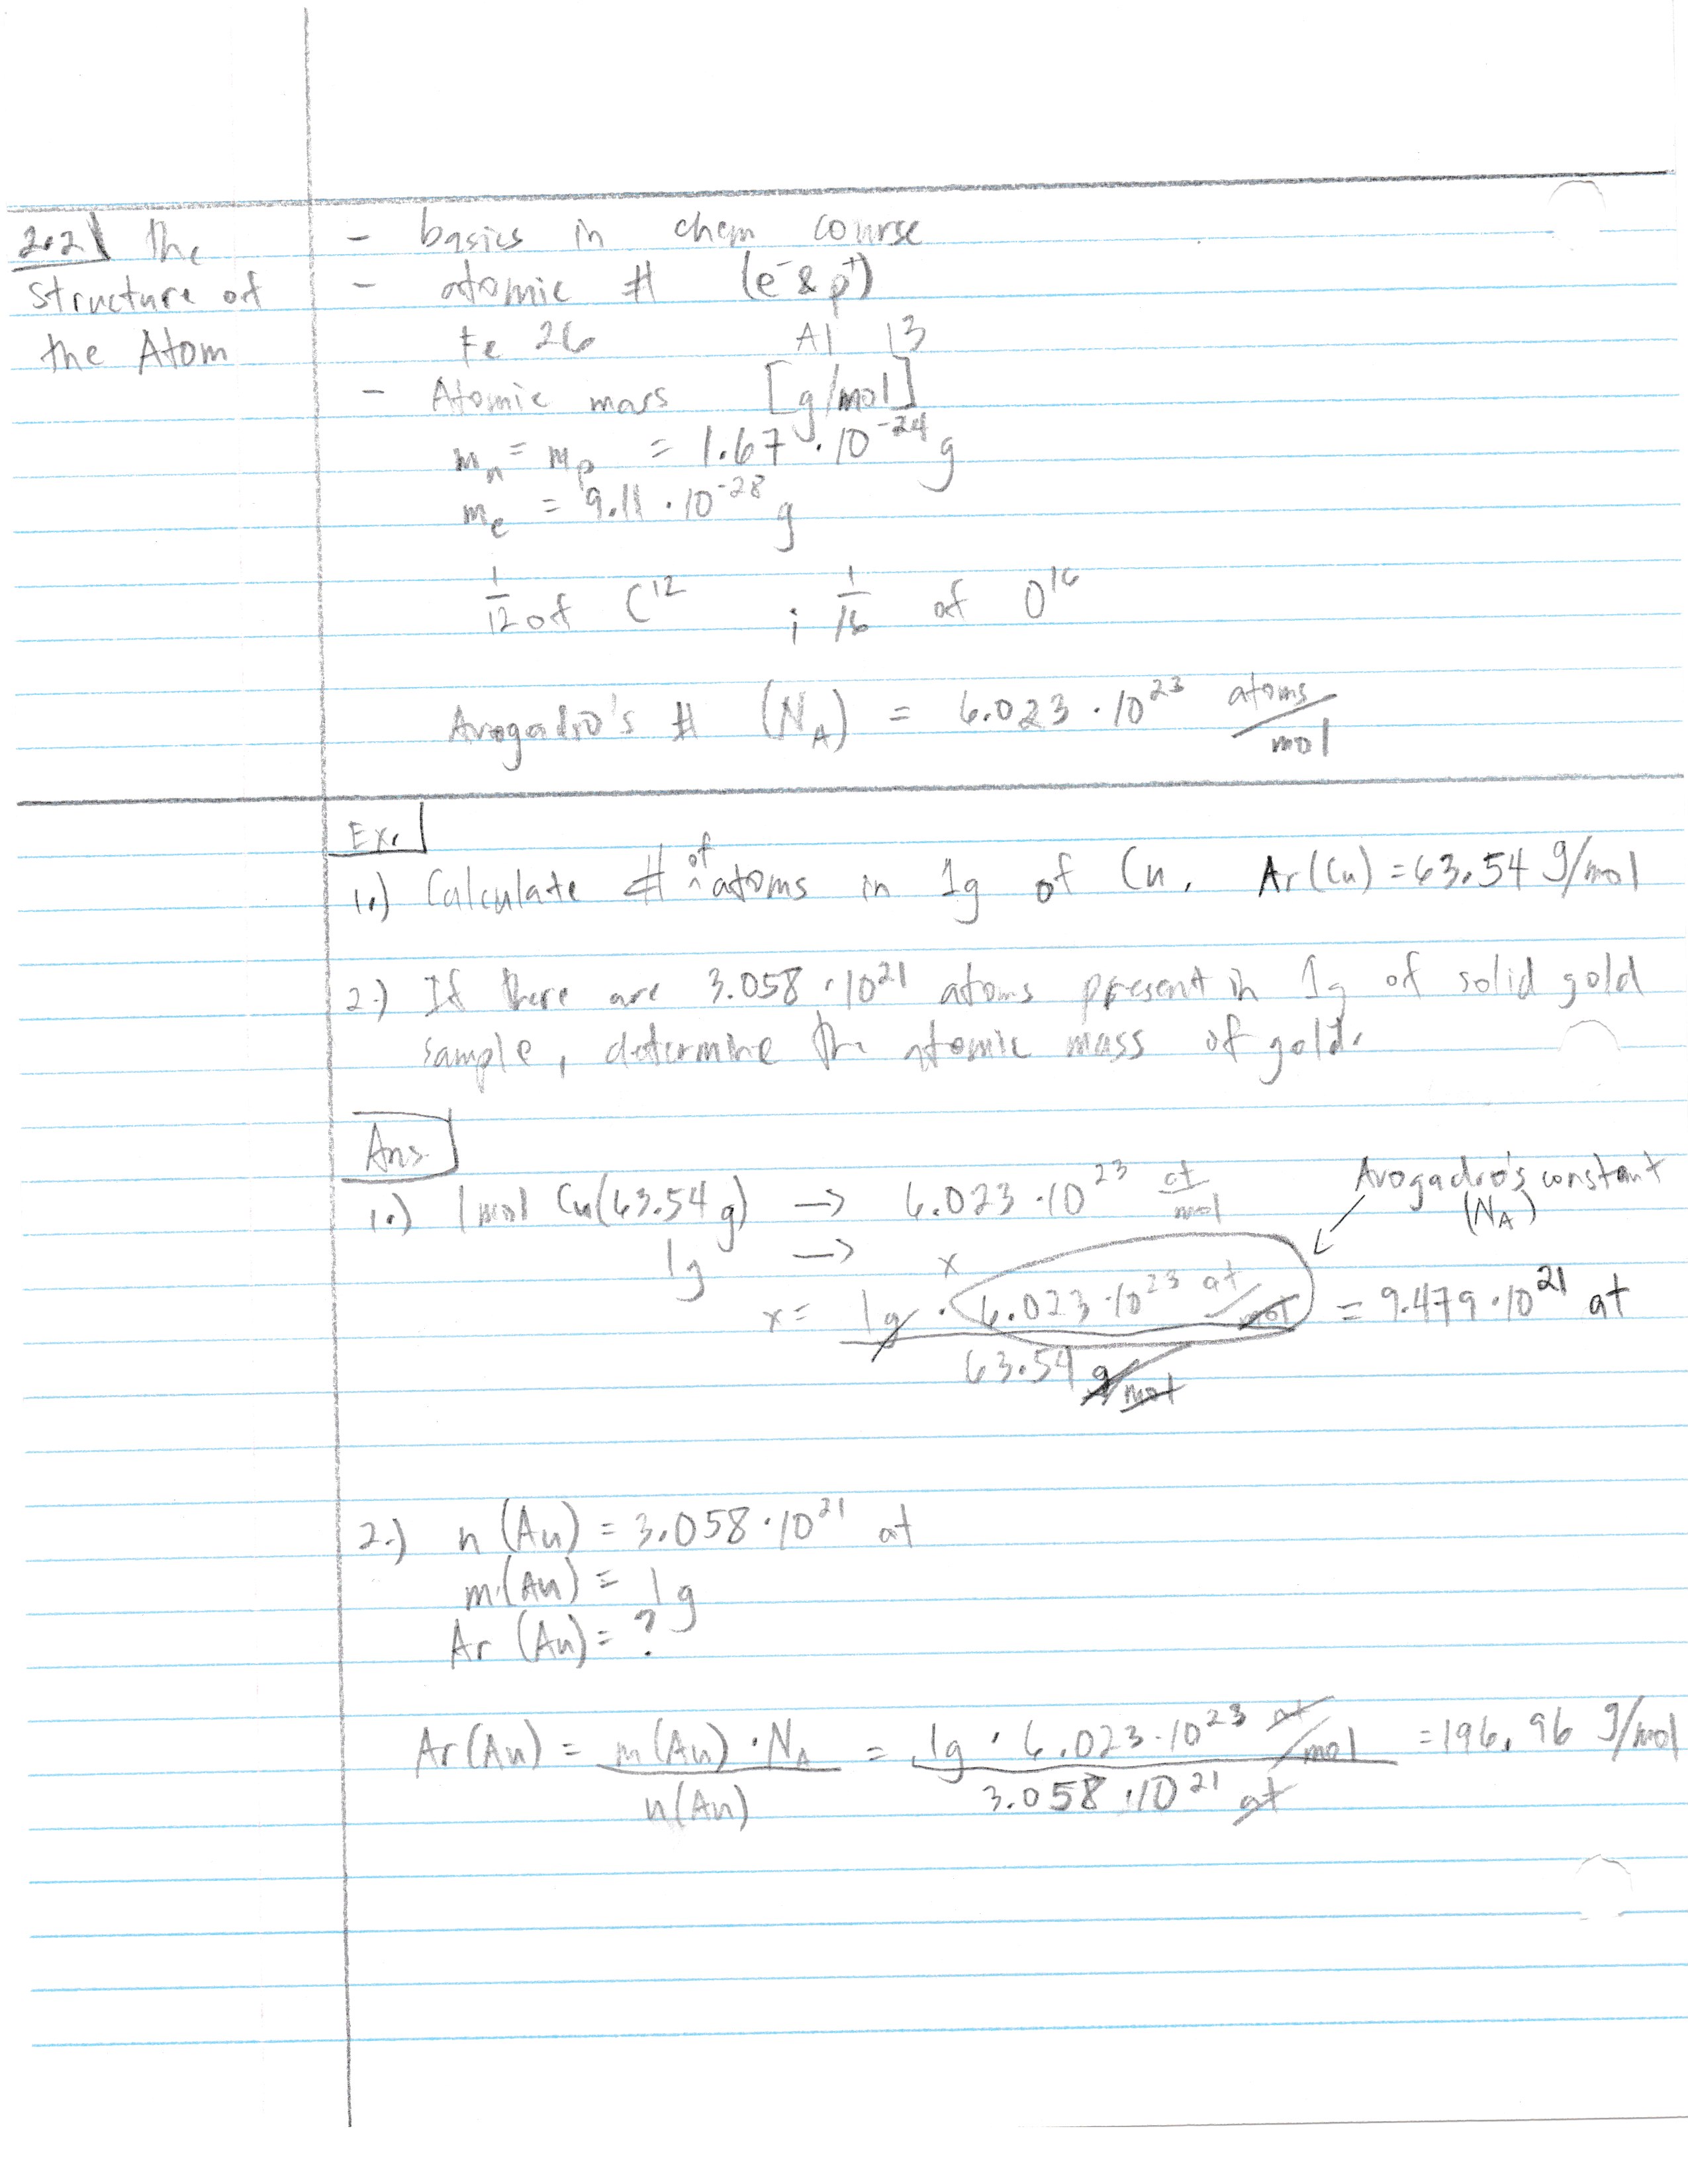 2.2 The
structure of
the Atom
- basics in chem course
- atomic # (e⁻ & p⁺)
Fe 26 Al 13
- Atomic mass [g/mol]
mₙ = mₚ = 1.67 · 10⁻²⁴ g
mₑ = 9.11 · 10⁻²⁸ g
1/12 of C¹² ; 1/16 of O¹⁶
Avogadro's # (N_A) = 6.023 · 10²³ atoms/mol
Ex.
1.) Calculate # of atoms in 1g of Cu. Ar(Cu) = 63.54 g/mol
2.) If there are 3.058 · 10²¹ atoms present in 1g of solid gold
sample, determine the atomic mass of gold.
Ans.
1.) 1 mol Cu(63.54 g) → 6.023 · 10²³ at/mol
Avogadro's constant
(N_A)
1g → x
x = 1g · 6.023 · 10²³ at/mol / 63.54 g/mol = 9.479 · 10²¹ at
2.) n (Au) = 3.058 · 10²¹ at
m(Au) = 1g
Ar (Au) = ?
Ar(Au) = m(Au) · N_A / n(Au) = 1g · 6.023 · 10²³ at/mol / 3.058 · 10²¹ at = 196.96 g/mol